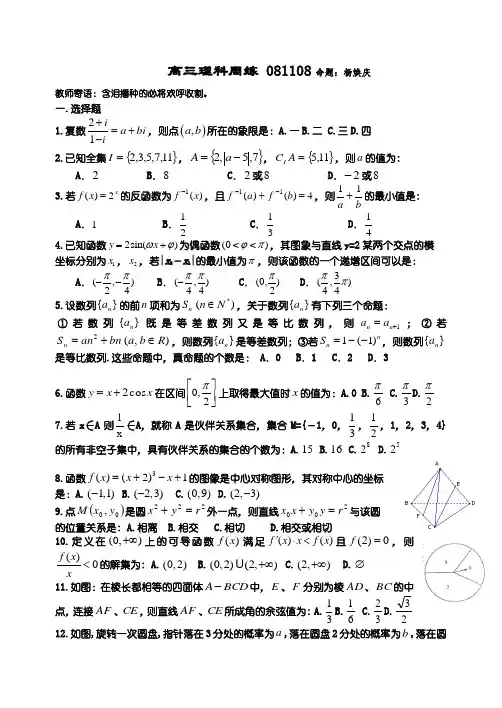 高三理科周练 081108 命题：杨焕庆
教师寄语：含泪播种的必将欢呼收割。
一.选择题
1.复数 $\frac{2+i}{1-i}=a+bi$，则点$(a,b)$所在的象限是：A.一B.二 C.三D.四
2.已知全集$I=\{2,3,5,7,11\}$，$A=\{2,|a-5|,7\}$，$C_I A=\{5,11\}$，则$a$的值为：
A．2 B．8 C．2或8 D．-2或8
3.若$f(x)=2^x$的反函数为$f^{-1}(x)$，且$f^{-1}(a)+f^{-1}(b)=4$，则$\frac{1}{a}+\frac{1}{b}$的最小值是：
A．1 B．$\frac{1}{2}$ C．$\frac{1}{3}$ D．$\frac{1}{4}$
4.已知函数$y=2\sin(\omega x+\varphi)$为偶函数$(0<\varphi<\pi)$，其图象与直线y=2某两个交点的横
坐标分别为$x_1$，$x_2$，若|x₂－x₁|的最小值为$\pi$，则该函数的一个递增区间可以是：
A．$(-\frac{\pi}{2},-\frac{\pi}{4})$ B．$(-\frac{\pi}{4},\frac{\pi}{4})$ C．$(0,\frac{\pi}{2})$ D．$(\frac{\pi}{4},\frac{3}{4}\pi)$
5.设数列$\{a_n\}$的前$n$项和为$S_n(n\in N^*)$，关于数列$\{a_n\}$有下列三个命题：
①若数列$\{a_n\}$既是等差数列又是等比数列，则$a_n=a_{n+1}$；②若
$S_n=an^2+bn(a,b\in R)$，则数列$\{a_n\}$是等差数列；③若$S_n=1-(-1)^n$，则数列$\{a_n\}$
是等比数列.这些命题中，真命题的个数是：A．0 B．1 C．2 D．3
6.函数$y=x+2\cos x$在区间$\left[0,\frac{\pi}{2}\right]$上取得最大值时$x$的值为：A.0 B.$\frac{\pi}{6}$ C.$\frac{\pi}{3}$D.$\frac{\pi}{2}$
7.若x∈A则$\frac{1}{x}$∈A，就称A是伙伴关系集合，集合M={－1，0，$\frac{1}{3}$，$\frac{1}{2}$，1，2，3，4}
的所有非空子集中，具有伙伴关系的集合的个数为：A.15 B.16 C.$2^8$ D.$2^5$
8.函数$f(x)=(x+2)^3-x+1$的图像是中心对称图形，其对称中心的坐标
是：A.$(-1,1)$ B.$(-2,3)$ C.$(0,9)$ D.$(2,-3)$
9.点$M(x_0,y_0)$是圆$x^2+y^2=r^2$外一点，则直线$x_0x+y_0y=r^2$与该圆
的位置关系是：A.相离 B.相交 C.相切 D.相交或相切
10.定义在$(0,+\infty)$上的可导函数$f(x)$满足$f'(x)\cdot x<f(x)$且$f(2)=0$，则
$\frac{f(x)}{x}<0$的解集为：A.$(0,2)$ B.$(0,2)\cup(2,+\infty)$ C.$(2,+\infty)$ D.$\varnothing$
11.如图：在棱长都相等的四面体$A-BCD$中，$E$、$F$分别为棱$AD$、$BC$的中
点，连接$AF$、$CE$，则直线$AF$、$CE$所成角的余弦值为：A.$\frac{1}{3}$B.$\frac{1}{6}$ C.$\frac{2}{3}$D.$\frac{\sqrt{3}}{2}$
12.如图，旋转一次圆盘，指针落在3分处的概率为$a$，落在圆盘2分处的概率为$b$，落在圆
A
E
B
D
F
C
3
2